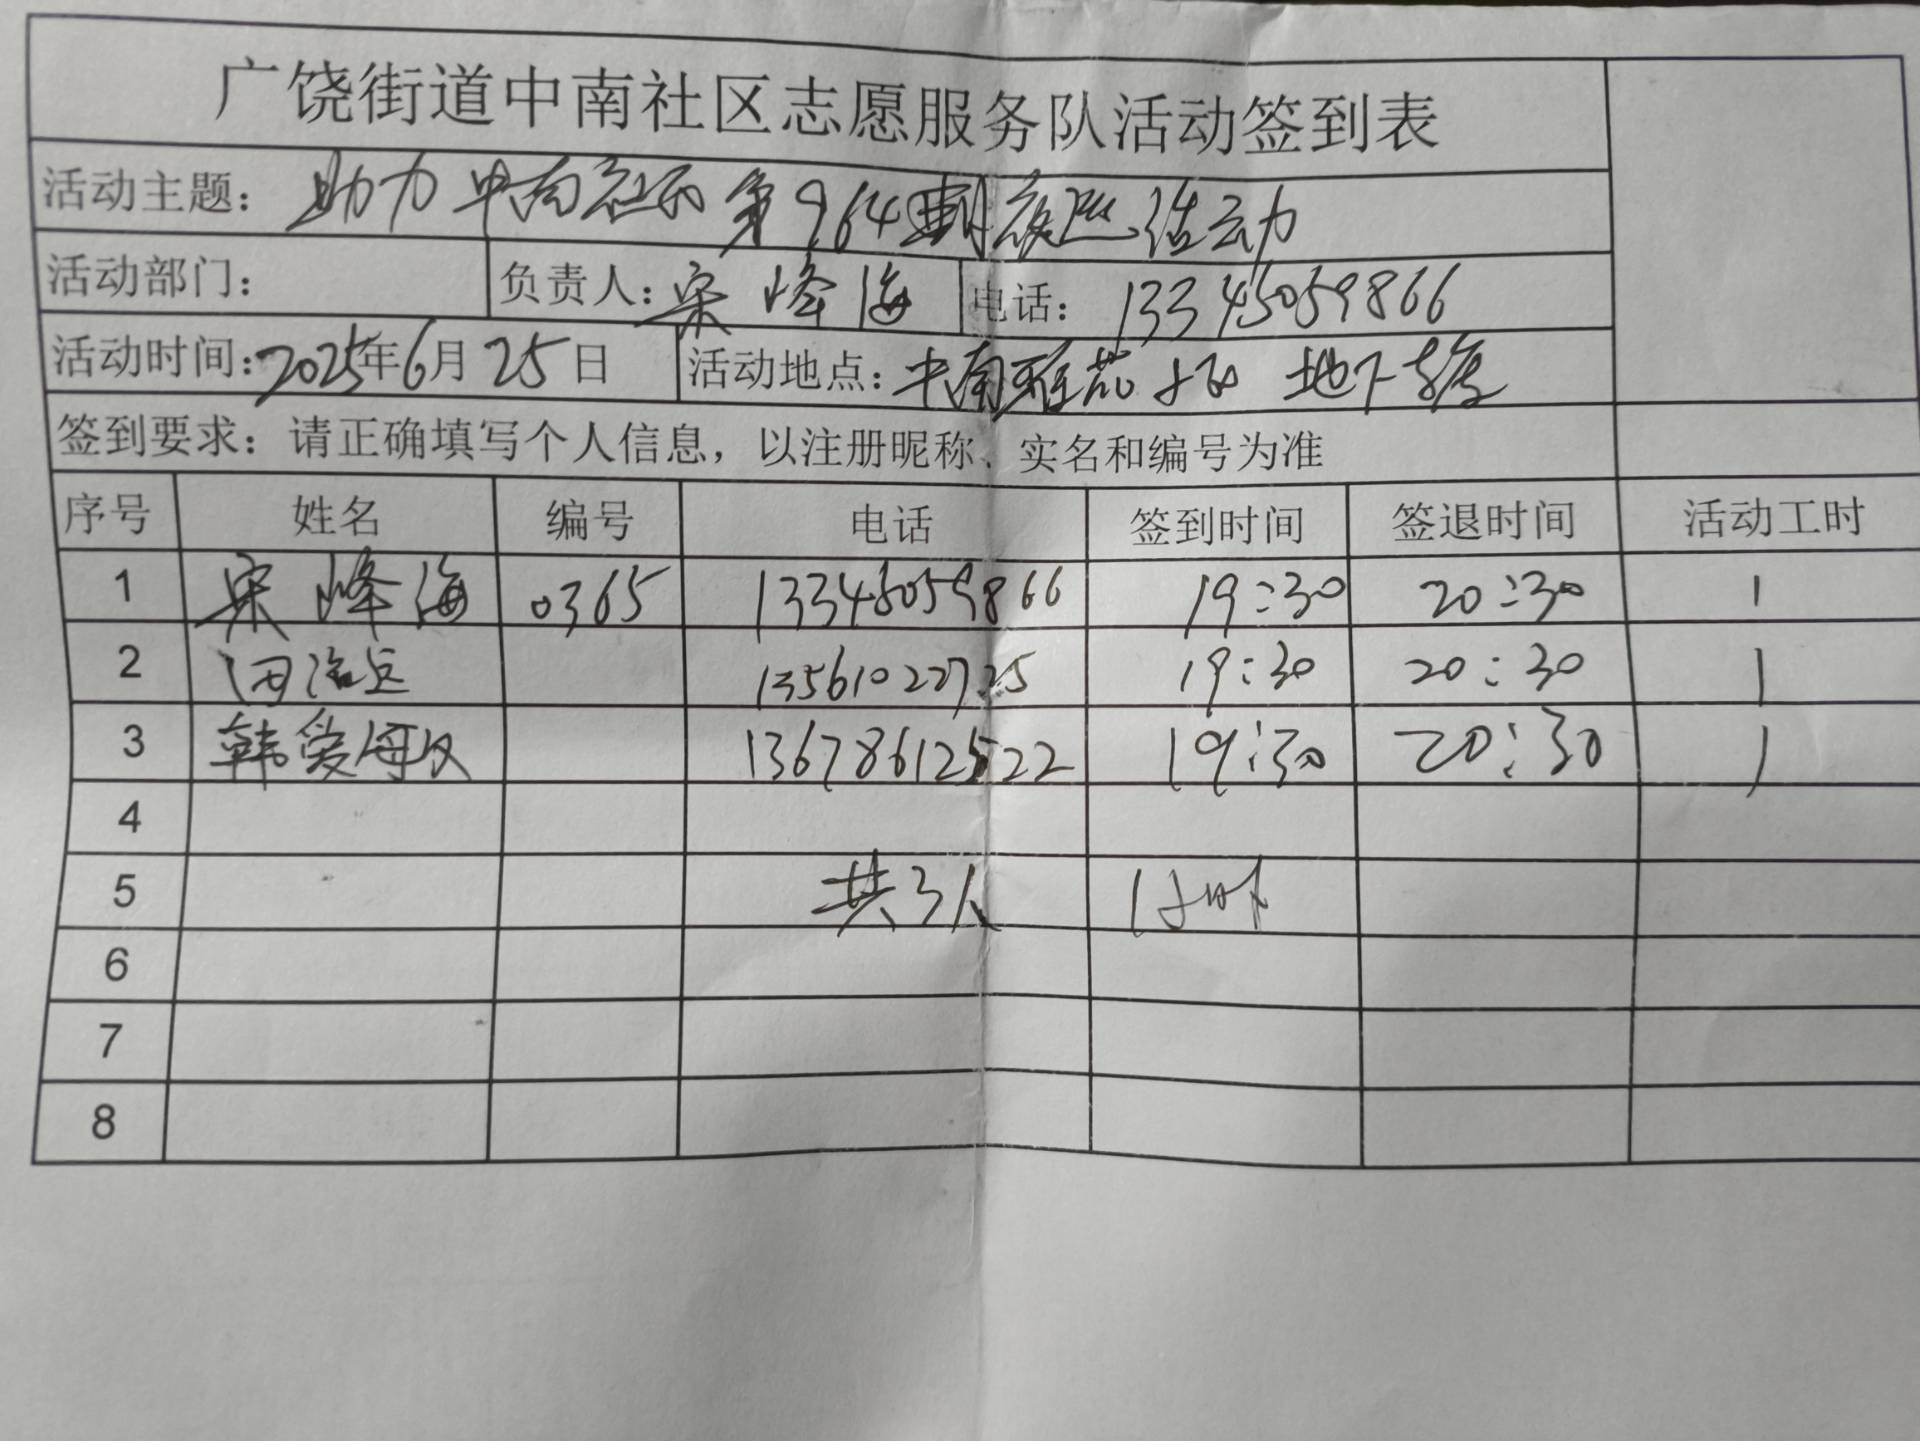 广饶街道中南社区志愿服务队活动签到表
活动主题: 助力中南社区第964期夜巡活动
活动部门: 负责人: 宋峰海 电话: 13345059866
活动时间: 2025年6月25日 活动地点: 中南雅苑小区 地下车库
签到要求: 请正确填写个人信息，以注册昵称、实名和编号为准
序号 姓名 编号 电话 签到时间 签退时间 活动工时
1 宋峰海 0365 13345059866 19:30 20:30 1
2 19:30 20:30 1
3 韩爱 13678612522 19:30 20:30 1
4
5 共3人 1小时
6
7
8